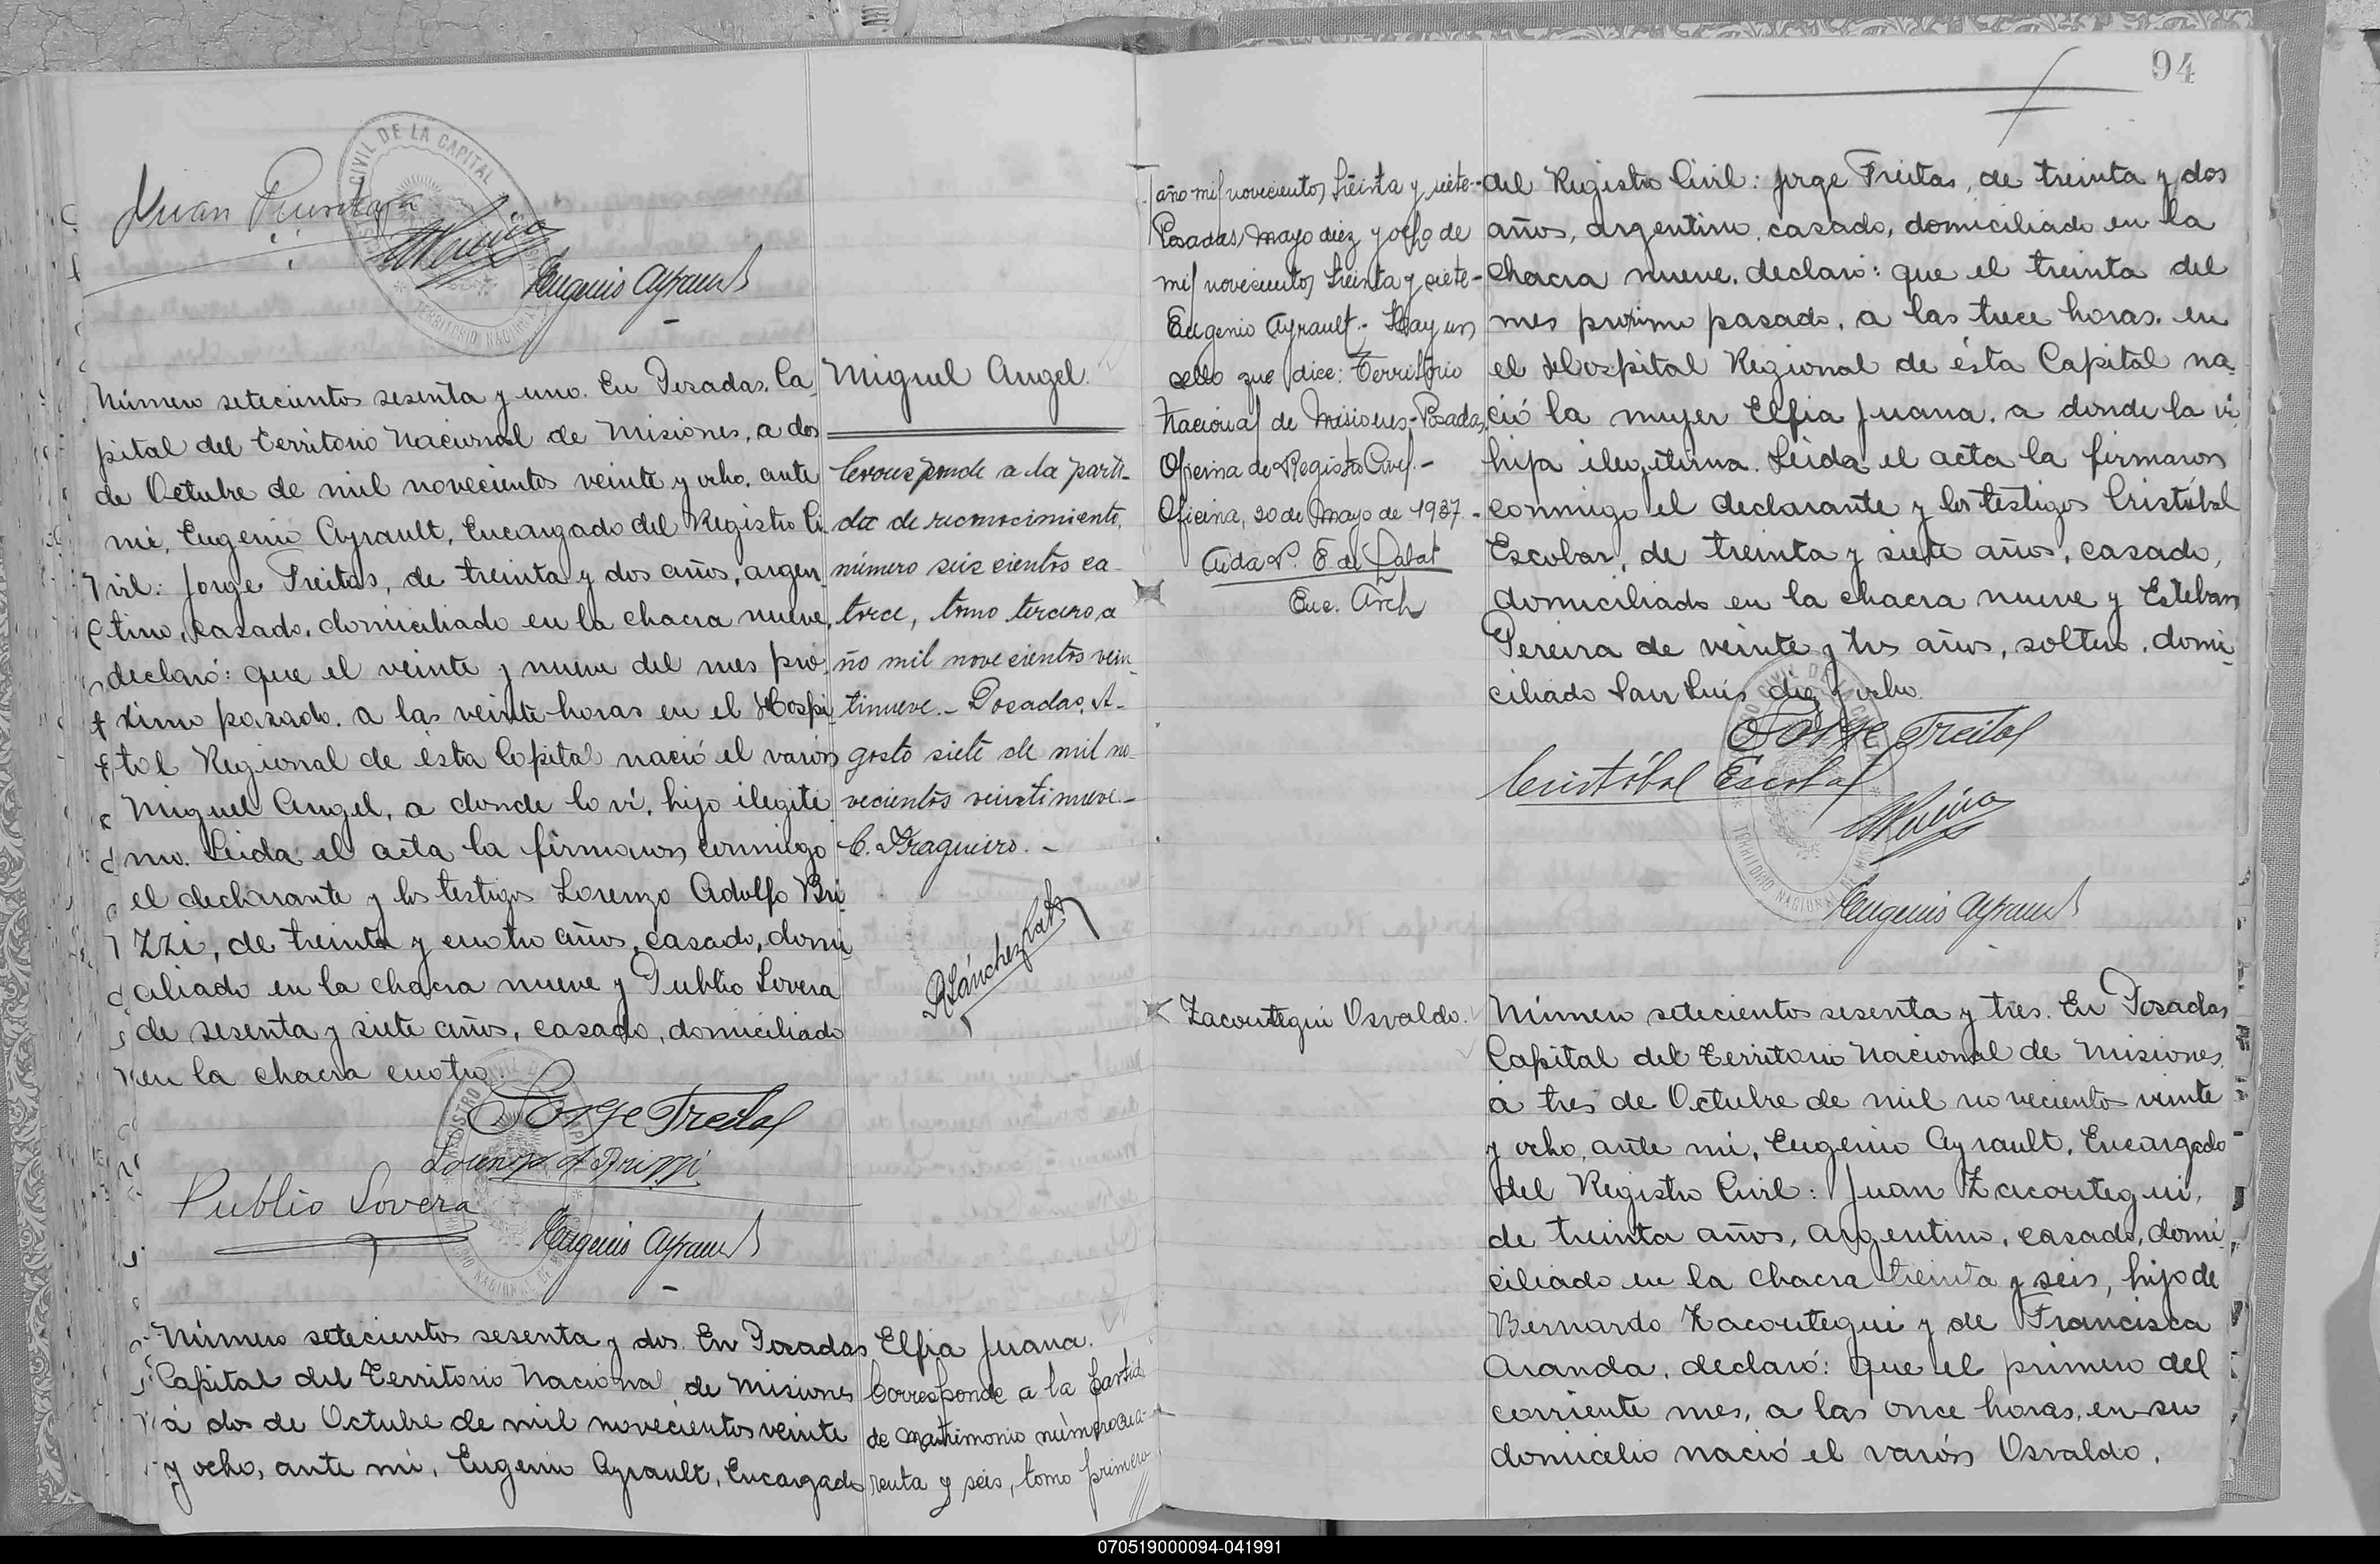 Juan
CIVIL DE LA CAPITAL
TERRITORIO NACIONAL
Eugenio Ayrault
Número setecientos sesenta y uno. En Posadas, Ca
pital del Territorio Nacional de Misiones, a dos
de Octubre de mil novecientos veinte y ocho, ante
mi, Eugenio Ayrault, Encargado del Registro Ci
vil: Jorge Freitas, de treinta y dos años, argen
tino, casado, domiciliado en la chacra nueve,
declaró: que el veinte y nueve del mes pró
ximo pasado, a las veinte horas en el Hospi
tal Regional de ésta Capital nació el varón
Miguel Angel, a donde lo ví, hijo ilegíti
mo. Leida el acta la firmaron conmigo
el declarante y los testigos Lorenzo Adolfo Bri
zzi, de treinta y cuatro años, casado, domi
ciliado en la chacra nueve y Publio Lovera
de sesenta y siete años, casado, domiciliado
en la chacra cuatro.
Jorge Freitas
Lorenzo A Brizzi
Publio Lovera
Eugenio Ayrault
Miguel Angel.
Corresponde a la parti-
da de reconocimiento,
número seiscientos ca-
torce, tomo tercero, a
ño mil novecientos vein
tinueve.- Posadas, A-
gosto siete de mil no-
vecientos veintinueve.-
C. Fragueiro.-
R Sánchez Ratti
Número setecientos sesenta y dos. En Posadas
Capital del Territorio Nacional de Misiones
á dos de Octubre de mil novecientos veinte
y ocho, ante mi, Eugenio Ayrault, Encargado
Elfia Juana.
Corresponde a la partida
de matrimonio número cua-
renta y seis, tomo primero
94
año mil novecientos treinta y siete--
Posadas, mayo diez y ocho de
mil novecientos treinta y siete-
Eugenio Ayrault.- Hay un
sello que dice: Territorio
Nacional de Misiones-Posadas
Oficina de Registro Civil.-
Oficina, 20 de Mayo de 1937.-
Aida P. E de Labat
Enc. Arch
del Registro Civil: Jorge Freitas, de treinta y dos
años, argentino, casado, domiciliado en la
chacra nueve, declaró: que el treinta del
mes próximo pasado, a las trece horas, en
el Hospital Regional de ésta Capital na
ció la mujer Elfia Juana, a donde la ví
hija ilegítima. Leida el acta la firmaron
conmigo el declarante y los testigos Cristóbal
Escobar, de treinta y siete años, casado,
domiciliado en la chacra nueve y Esteban
Pereira de veinte y tres años, soltero, domi
ciliado San Luis diez y ocho.
Jorge Freitas
Cristóbal Escobar
Eugenio Ayrault
Zacoutegui Osvaldo.
Número setecientos sesenta y tres. En Posadas
Capital del Territorio Nacional de Misiones,
á tres de Octubre de mil novecientos veinte
y ocho, ante mi, Eugenio Ayrault, Encargado
del Registro Civil: Juan Zacoutegui,
de treinta años, argentino, casado, domi
ciliado en la chacra treinta y seis, hijo de
Bernardo Zacoutegui y de Francisca
Aranda, declaró: que el primero del
corriente mes, a las once horas, en su
domicilio nació el varón Osvaldo,
070519000094-041991